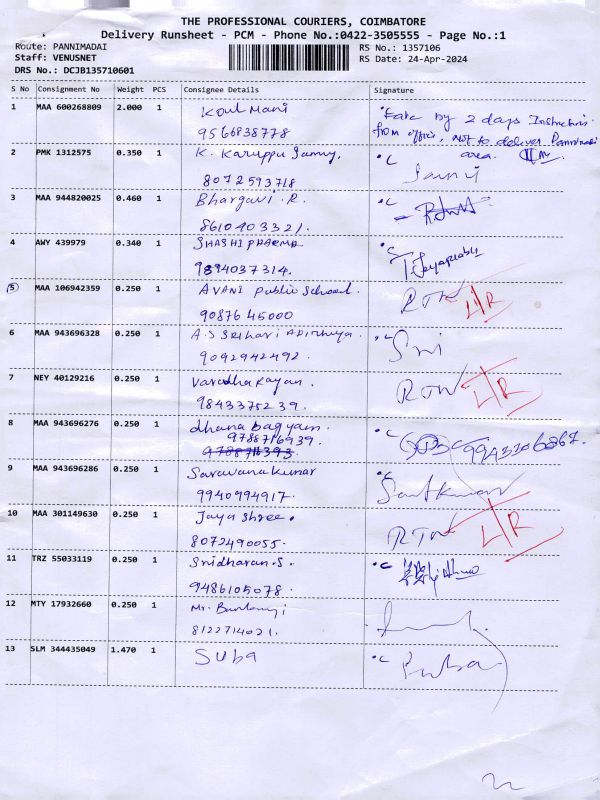 THE PROFESSIONAL COURIERS, COIMBATORE
Delivery Runsheet - PCM - Phone No.:0422-3505555 - Page No.:1
Route: PANNIMADAI
RS No.: 1357106
Staff: VENUSNET
RS Date: 24-Apr-2024
DRS No.: DCJB135710601
S No Consignment No Weight PCS Consignee Details Signature
1 MAA 600268809 2.000 1 Mani
9566838778
by 2 days
from office, not to deliver
area.
2 PMK 1312575 0.350 1 K. Karuppu Samy,
8072593718
3 MAA 944820025 0.460 1 Bhargavi. R.
8610403321.
4 AWY 439979 0.340 1 SHASHI PHARMA
9894037314.
T. Jayaprabu
5 MAA 106942359 0.250 1 AVANI Public School.
9087645000
RTN LR
6 MAA 943696328 0.250 1 A.S Srihari
9092942492.
Sri
7 NEY 40129216 0.250 1 Varadharayan.
9843375239.
RTN LR
8 MAA 943696276 0.250 1 dhana bagyam.
9788716939.
9788711393
9943306867.
9 MAA 943696286 0.250 1 Saravana Kumar
9940994917.
10 MAA 301149630 0.250 1 Jaya Shree.
8072490055.
RTN LR
11 TRZ 55033119 0.250 1 Sridharan.S.
9486105078.
12 MTY 17932660 0.250 1 Mr.
8122714021.
13 SLM 344435049 1.470 1 Suba